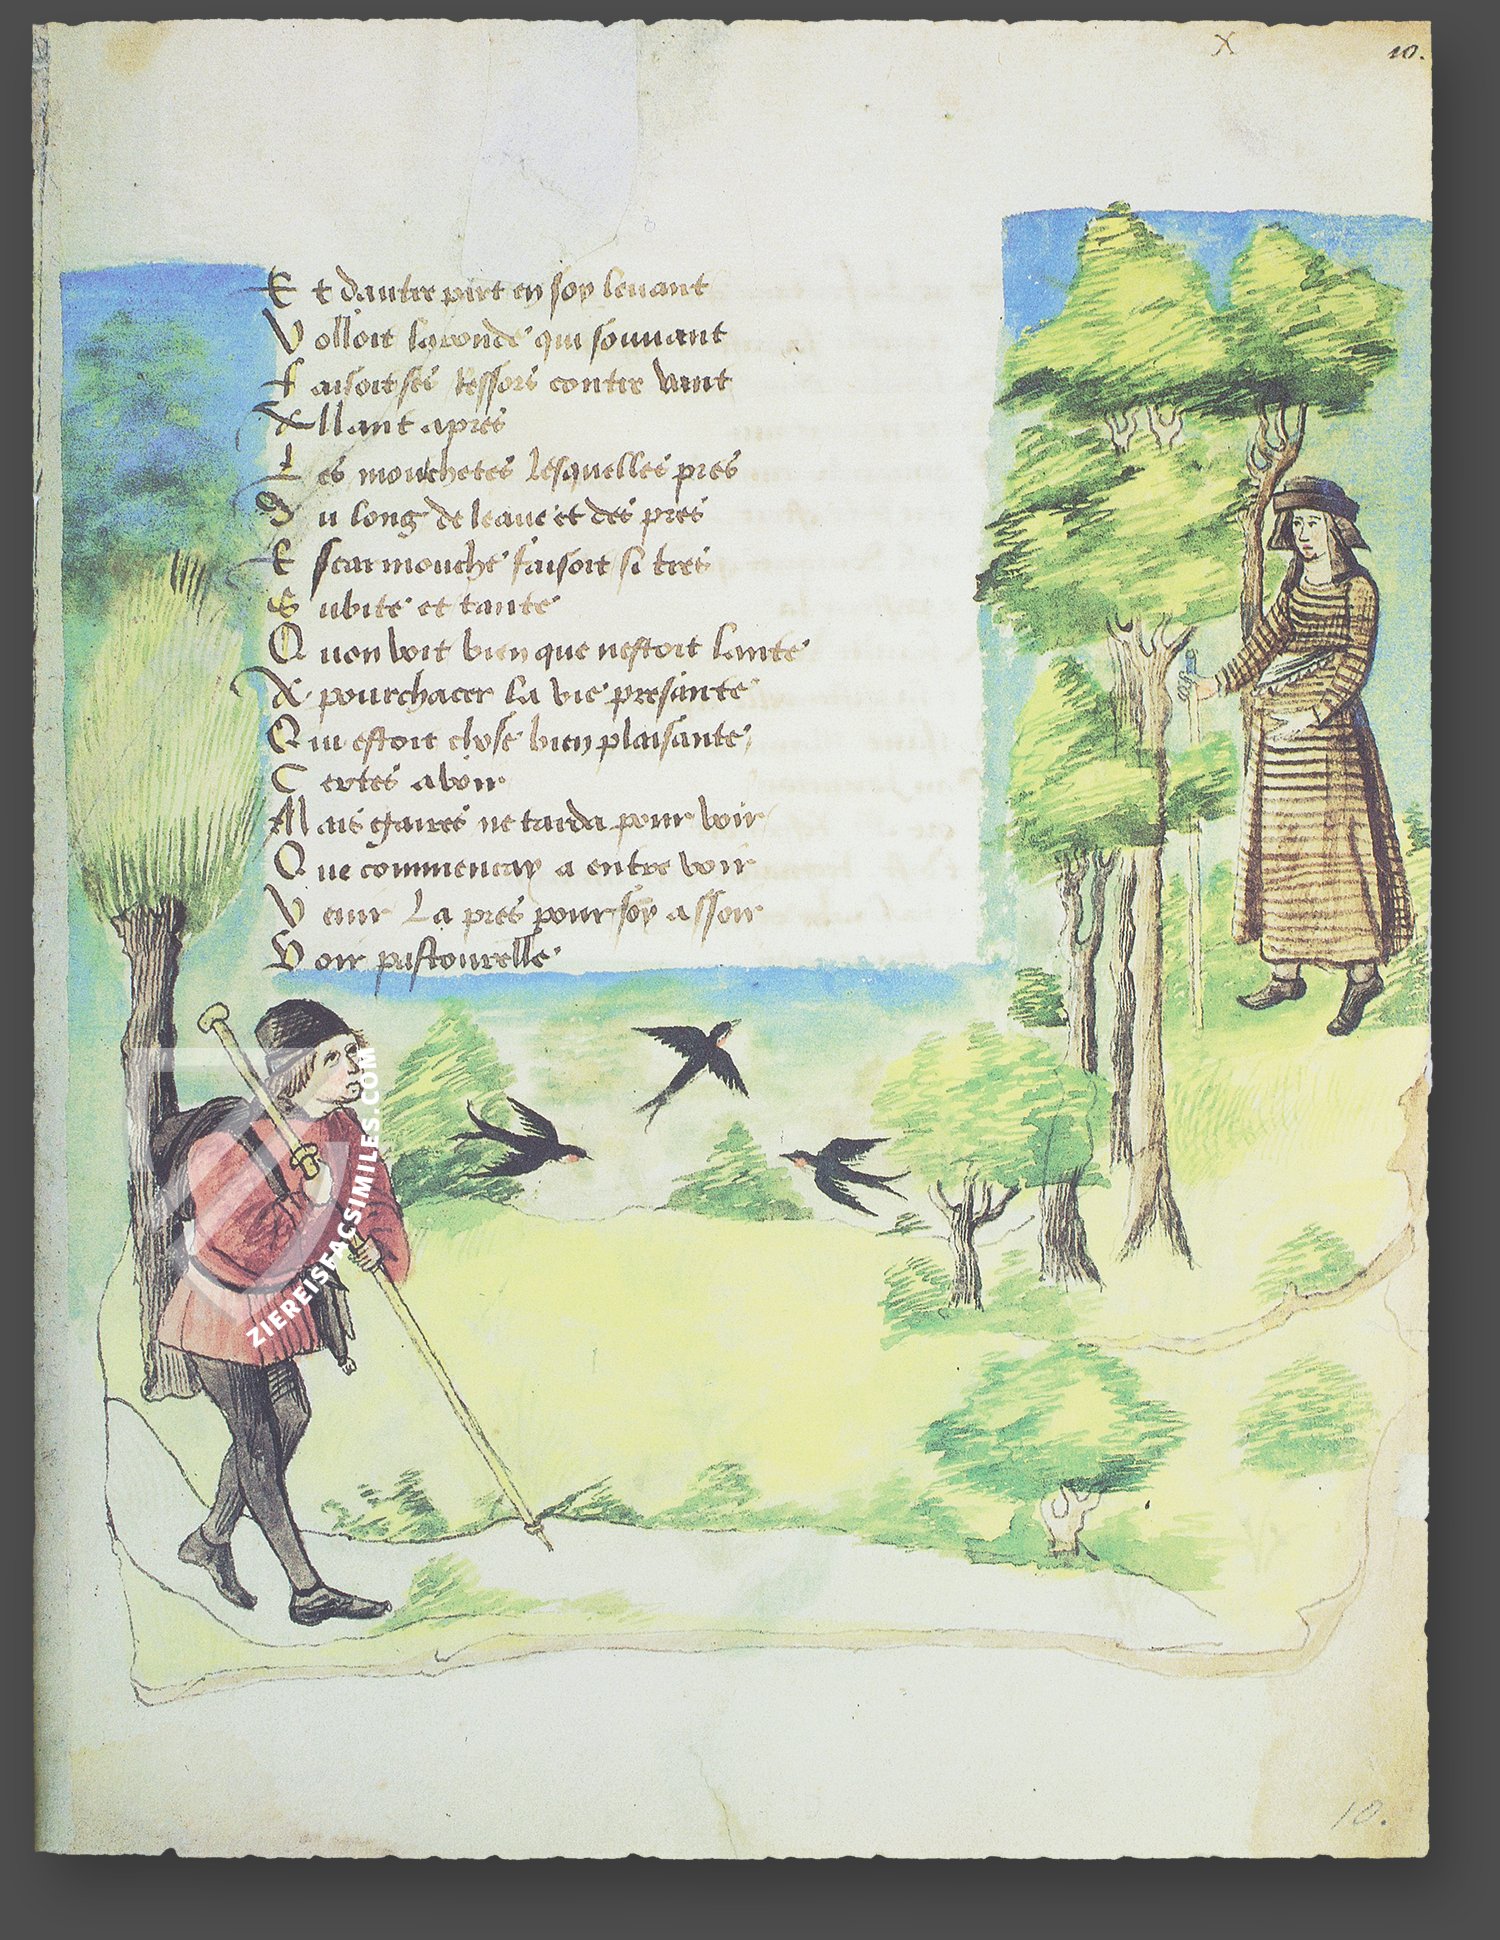 X
10.
Et dautre part en soy levant
Volloit laronde qui souvant
Faisoit ses Ressors contre vant
Allant apres
Les mouchetes lesquelles pres
Du long de leaue et des pres
Escarmouche faisoit si tres
Subite et tante
Quon voit bien que nestoit lante
A pourchacer la vie presante
Qui estoit chose bien plaisante
Certes a voir
Mais gaires ne tarda pour voir
Que commencay a entre voir
Venir La pres pour soy assoir
Voir pastourelle
ZIEREISFACSIMILES.COM
10.